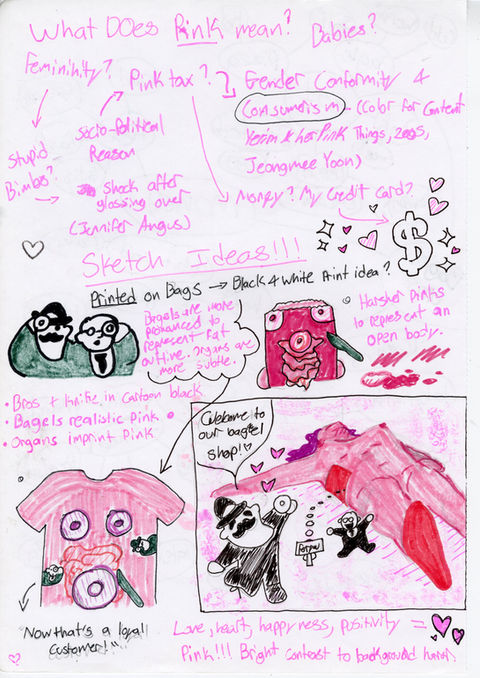 What Does Pink mean? Babies?
Femininity?
Pink tax?
Gender Conformity &
Consumerism - (Color for Content
Yeim & her Pink Things, 2005,
Jeongmee Yoon)
Stupid
Bimbos?
Socio-Political
Reason
Shock after
glossing over
(Jennifer Angus)
Money? My Credit Card?
$
Sketch Ideas!!!
Printed on Bags → Black & White Print idea?
Bagels are more
pronounced to
represent Rat
outline. Organs are
more subtle.
Harsher Pinks
to represent an
open body.
• Bros + Knife in Cartoon black
• Bagels realistic Pink
• Organs imprint Pink
Welcome to
our bagel
shop!
Now that's a loyal
customer!"
Love, heart, happyness, positivity =
Pink!!! Bright contrast to background horror.